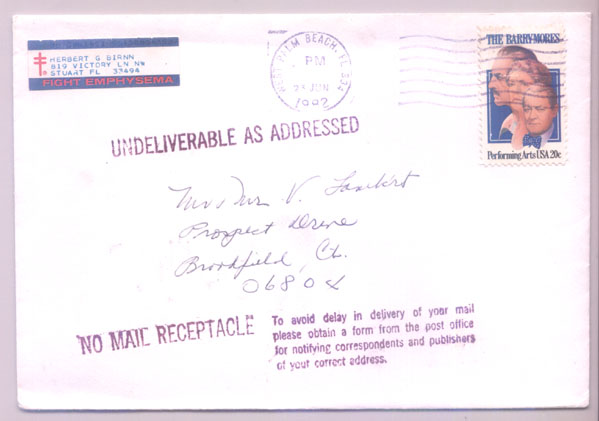 HERBERT G BIRNN
819 VICTORY LN NW
STUART FL 33494
FIGHT EMPHYSEMA
WEST PALM BEACH, FL 334
PM
JUN
1982
THE BARRYMORES
Performing Arts USA 20c
UNDELIVERABLE AS ADDRESSED
V. Lambert
Prospect Drive
Brookfield, Ct.
06804
NO MAIL RECEPTACLE
To avoid delay in delivery of your mail
please obtain a form from the post office
for notifying correspondents and publishers
of your correct address.